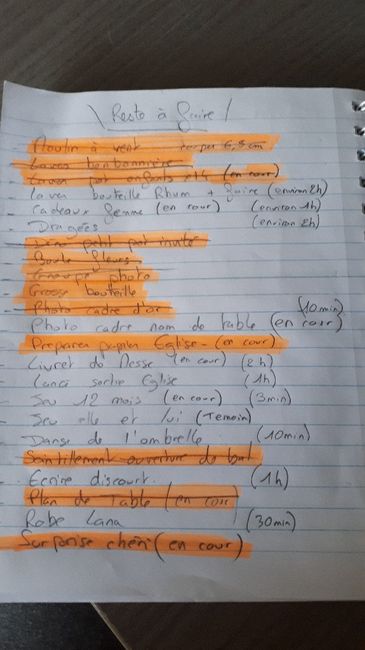 \ Reste à faire /
Moulin à vent couper 6,5 cm
Laver bonbonnière
Laver pot enfants et 4 (en cour)
- Laver bouteille Rhum + faire (environ 2h)
- Cadeaux femme (en cour) (environ 1h)
- Dragées (environ 2h)
Déco petit pot invité
Boule fleurs
Groupe photo
Grosse bouteille
- Photo cadre d'or
Photo cadre nom de table (en cour) (10min)
Preparer papier Eglise - (en cour)
- Livret de Messe (en cour) (2h)
- Lancé sortie Eglise (1h)
- Jeu 12 mois (en cour) (3min)
- Jeu elle et lui (Temoin)
- Danse de l'ombrelle (10min)
ouverture de bal
- Ecrire discourt. (1h)
Plan de Table (en cour)
- Robe Lana (30min)
Surprise chéri (en cour)